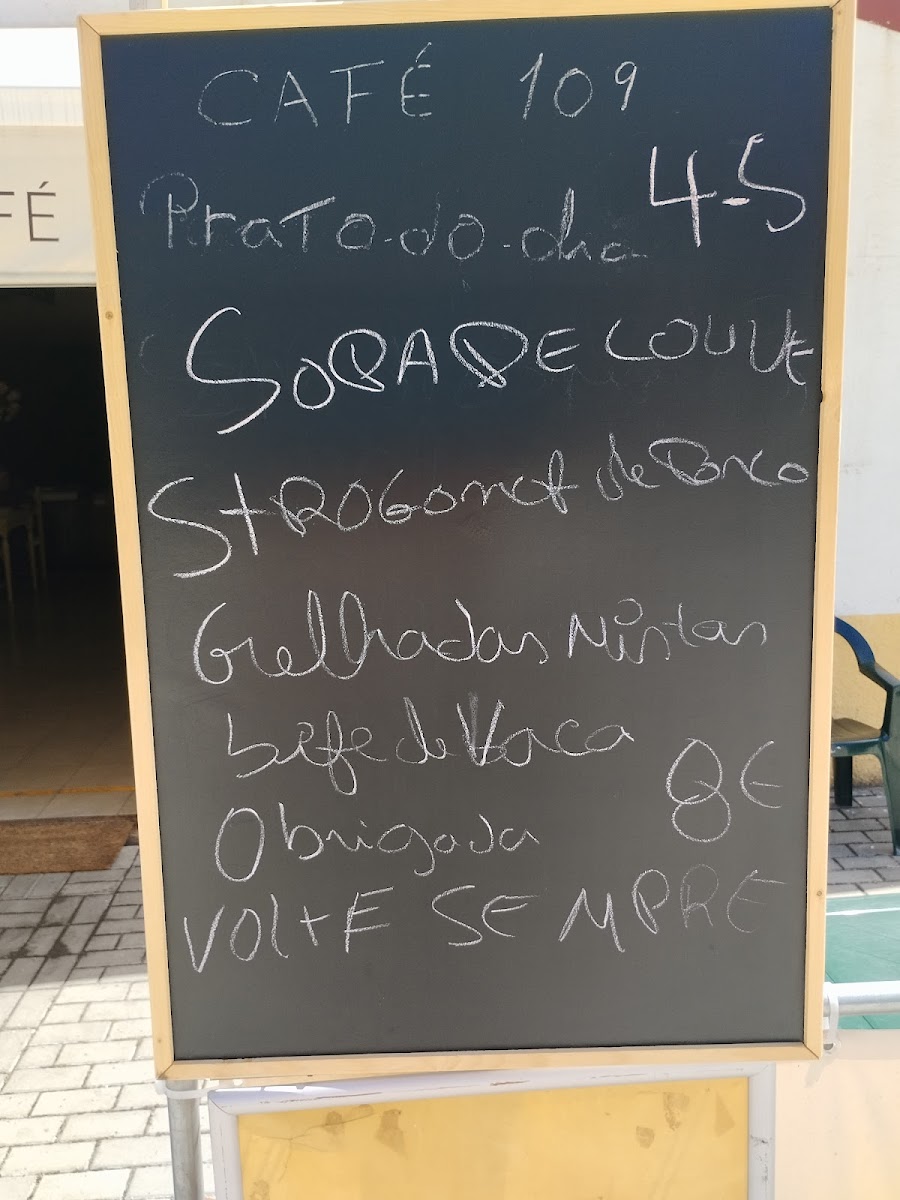 CAFÉ 109
FÉ
Prato-do-dia 4-5
SOPA DE COUVE
StROGonof de Porco
Grelhadas Mistas
bife de Vaca
8€
Obrigada
VOLTE SEMPRE